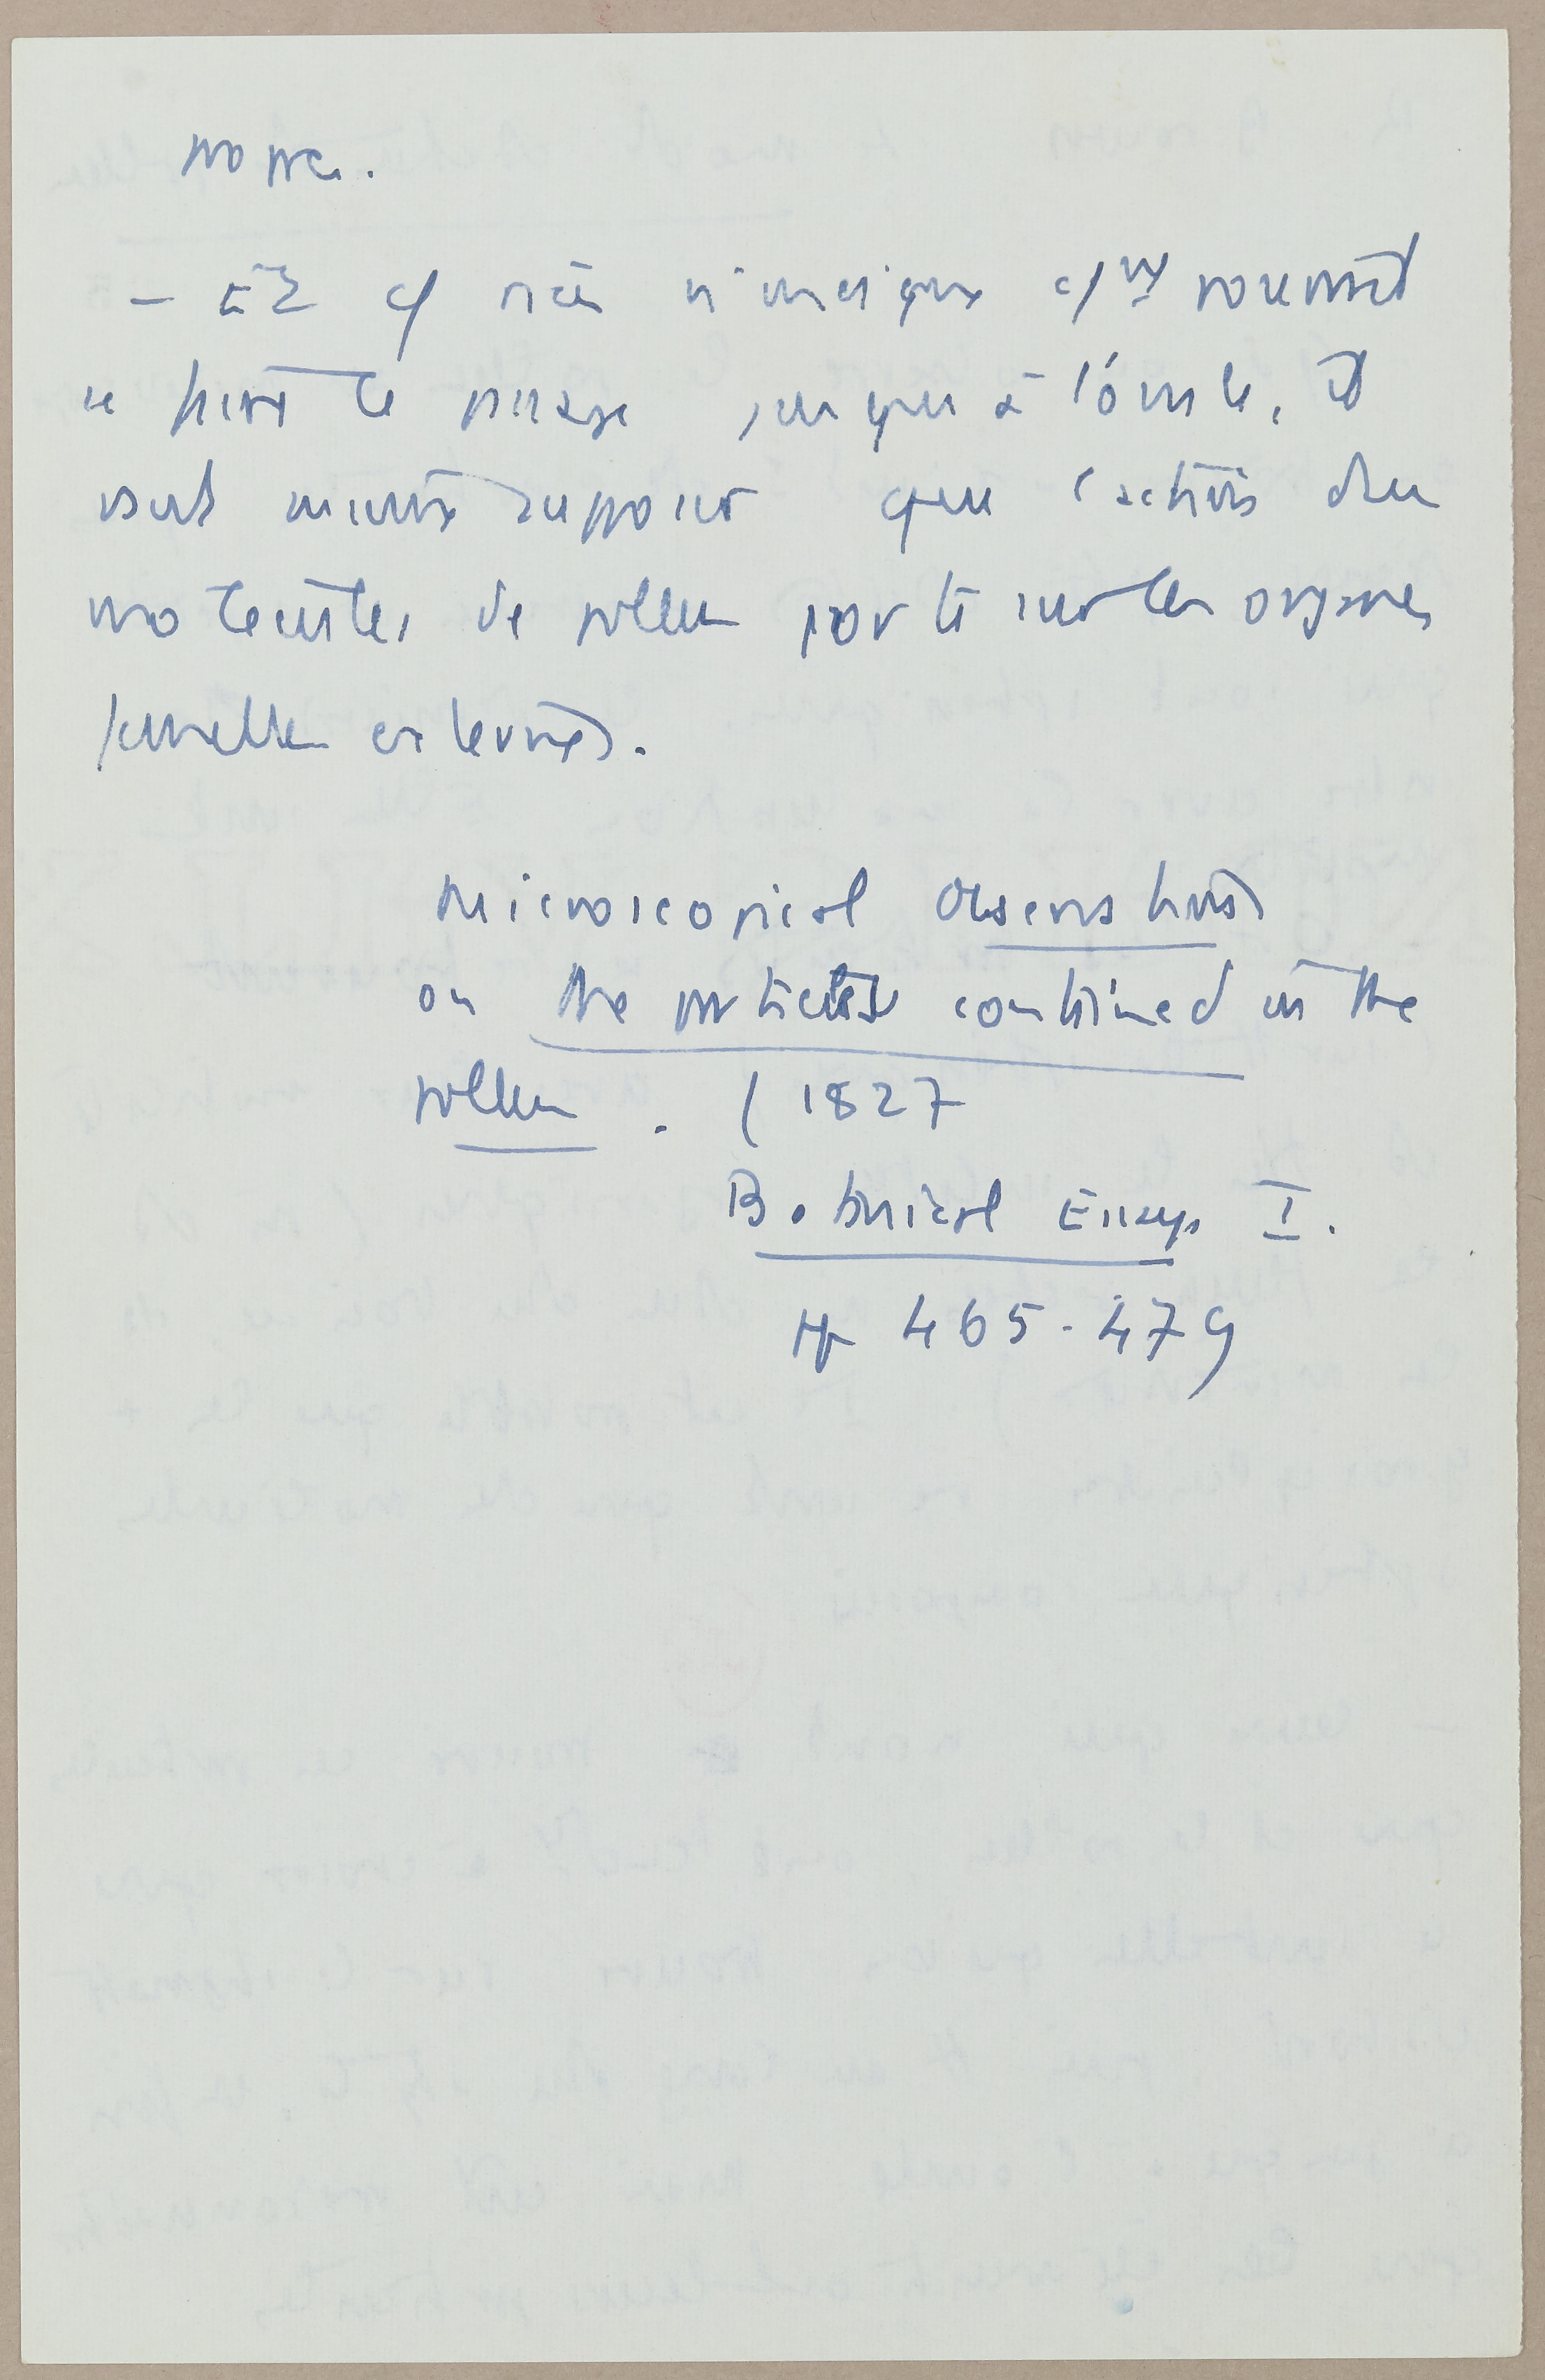 propres.
- Et cf rien n'indique cmt pourrait
se faire le passage jusqu'à l'ovule, il
vaut mieux supposer que l'action des
molécules de pollen porte sur les organes
femelles externes.
Microscopical Observations
on the particles contained in the
pollen. (1827
Botanical I.
pp 465-479